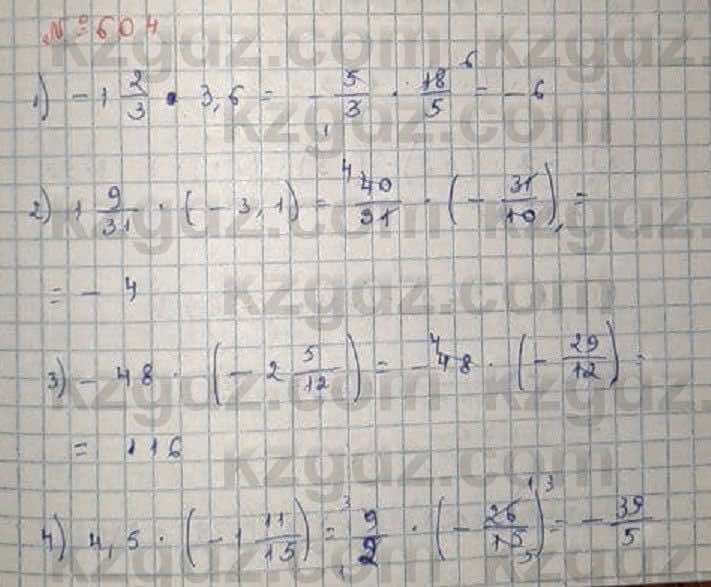 № 604
1) - 1 2/3 · 3,6 = - 5/3 · 18/5 = - 6
2) 1 9/31 · ( - 3,1 ) = 40/31 · ( - 31/10 ) =
= - 4
3) - 48 · ( - 2 5/12 ) = - 48 · ( - 29/12 ) =
= 116
4) 4,5 · ( - 1 11/15 ) = 9/2 · ( - 26/15 ) = - 39/5
kzgdz.com